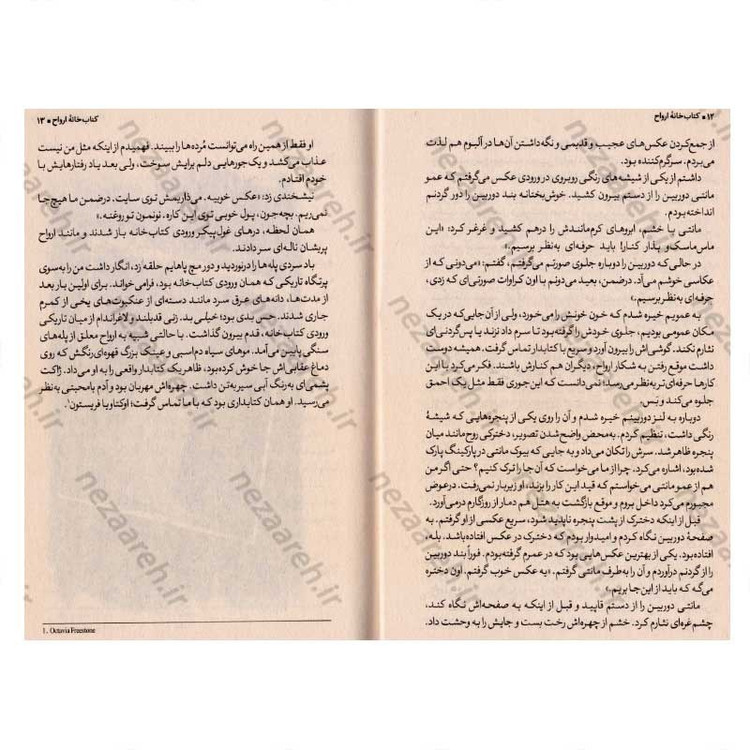 ۱۲ • کتاب‌خانهٔ ارواح
از جمع‌کردن عکس‌های عجیب و قدیمی و نگه‌داشتن آن‌ها در آلبوم هم لذت
می‌بردم. سرگرم‌کننده بود.
داشتم از یکی از شیشه‌های رنگی روبروی در ورودی عکس می‌گرفتم که عمو
مانتی دوربین را از دستم بیرون کشید. خوش‌بختانه بند دوربین را دور گردنم
انداخته‌بودم.
مانتی با خشم، ابروهای کرم‌مانندش را درهم کشید و غرغر کرد: «این
ماس‌ماسک و بذار کنار! باید حرفه‌ای به‌نظر برسیم.»
در حالی‌که دوربین را دوباره جلوی صورتم می‌گرفتم، گفتم: «می‌دونی که از
عکاسی خوشم می‌آد. درضمن، بعید می‌دونم با اون کراوات صورتی‌ای که زدی،
حرفه‌ای به‌نظر برسیم.»
به عمویم خیره شدم که خون خونش را می‌خورد، ولی از آن جایی‌که در یک
مکان عمومی بودیم، جلوی خودش را گرفته‌بود تا سرم داد نزند یا پس‌گردنی‌ای
نثارم نکند. گوشی‌اش را بیرون آورد و سریع با کتابدار تماس گرفت. همیشه دوست
داشت موقع رفتن به شکار ارواح، دیگران هم کنارش باشند. فکر می‌کرد با این
کارها حرفه‌ای‌تر به‌نظر می‌رسد؛ نمی‌دانست که این‌جوری فقط مثل یک احمق
جلوه می‌کند و بس.
دوباره به لنز دوربینم خیره شدم و آن را روی یکی از پنجره‌هایی که شیشهٔ
رنگی داشت، تنظیم کردم. به‌محض واضح‌شدن تصویر، دخترکی روح‌مانند میان
پنجره ظاهر شد. سرش را تکان می‌داد و به جایی که بیوک مانتی در پارکینگ پارک
شده‌بود، اشاره می‌کرد. چرا از ما می‌خواست که آن‌جا را ترک کنیم؟ حتی اگر من
هم از عمو مانتی می‌خواستم که قید این کار را بزند، او زیر بار نمی‌رفت. درعوض
مجبورم می‌کرد داخل بروم و موقع بازگشت به هتل هم دمار از روزگارم درمی‌آورد.
قبل از اینکه دخترک از پشت پنجره ناپدید شود، سریع عکسی از او گرفتم. به
صفحهٔ دوربین نگاه کردم و امیدوار بودم که دخترک در عکس افتاده‌باشد. بله،
افتاده‌بود. یکی از بهترین عکس‌هایی بود که در عمرم گرفته‌بودم. فوراً بند دوربین
را از گردنم درآوردم و آن را به‌طرف مانتی گرفتم. «یه عکس خوب گرفتم. اون دختره
می‌گه که باید از این‌جا بریم.»
مانتی دوربین را از دستم قاپید و قبل از اینکه به صفحه‌اش نگاه کند،
چشم‌غره‌ای نثارم کرد. خشم از چهره‌اش رخت بست و جایش را به وحشت داد.
کتاب‌خانهٔ ارواح • ۱۳
او فقط از همین راه می‌توانست مُرده‌ها را ببیند. فهمیدم از اینکه مثل من نیست
عذاب می‌کشد و یک‌جورهایی دلم برایش سوخت، ولی بعد یاد رفتارهایش با
خودم افتادم.
نیشخندی زد: «عکس خوبیه. می‌ذاریمش توی سایت. درضمن ما هیچ‌جا
نمی‌ریم. بچه‌جون، پول خوبی توی این کاره. نونمون تو روغنه.»
همان لحظه، درهای غول‌پیکر ورودی کتاب‌خانه باز شدند و مانند ارواح
پریشان ناله‌ای سر دادند.
باد سردی پله‌ها را درنوردید و دور مچ پاهایم حلقه زد، انگار داشت من را به‌سوی
پرتگاه تاریکی که همان ورودی کتاب‌خانه بود، فرامی‌خواند. برای اولین بار بعد
از مدت‌ها، دانه‌های عرق سرد مانند دسته‌ای از عنکبوت‌های یخی از کمرم
جاری شدند. حس بدی بود؛ خیلی بد. زنی قدبلند و لاغراندام از میان تاریکی
ورودی کتاب‌خانه، قدم بیرون گذاشت. با حالتی شبیه به ارواح معلق از پله‌های
سنگی پایین می‌آمد. موهای سیاه دم‌اسبی و عینک بزرگ قهوه‌ای‌رنگش که روی
دماغ عقابی‌اش جا خوش کرده‌بود، ظاهر یک کتابدار واقعی را به او می‌داد. ژاکت
پشمی‌ای به‌رنگ آبی سیر به‌تن داشت. چهره‌اش مهربان بود و آدم بامحبتی به‌نظر
می‌رسید. او همان کتابداری بود که با ما تماس گرفت؛ اوکتاویا فریستون¹.
1. Octavia Freestone
nezaareh.ir